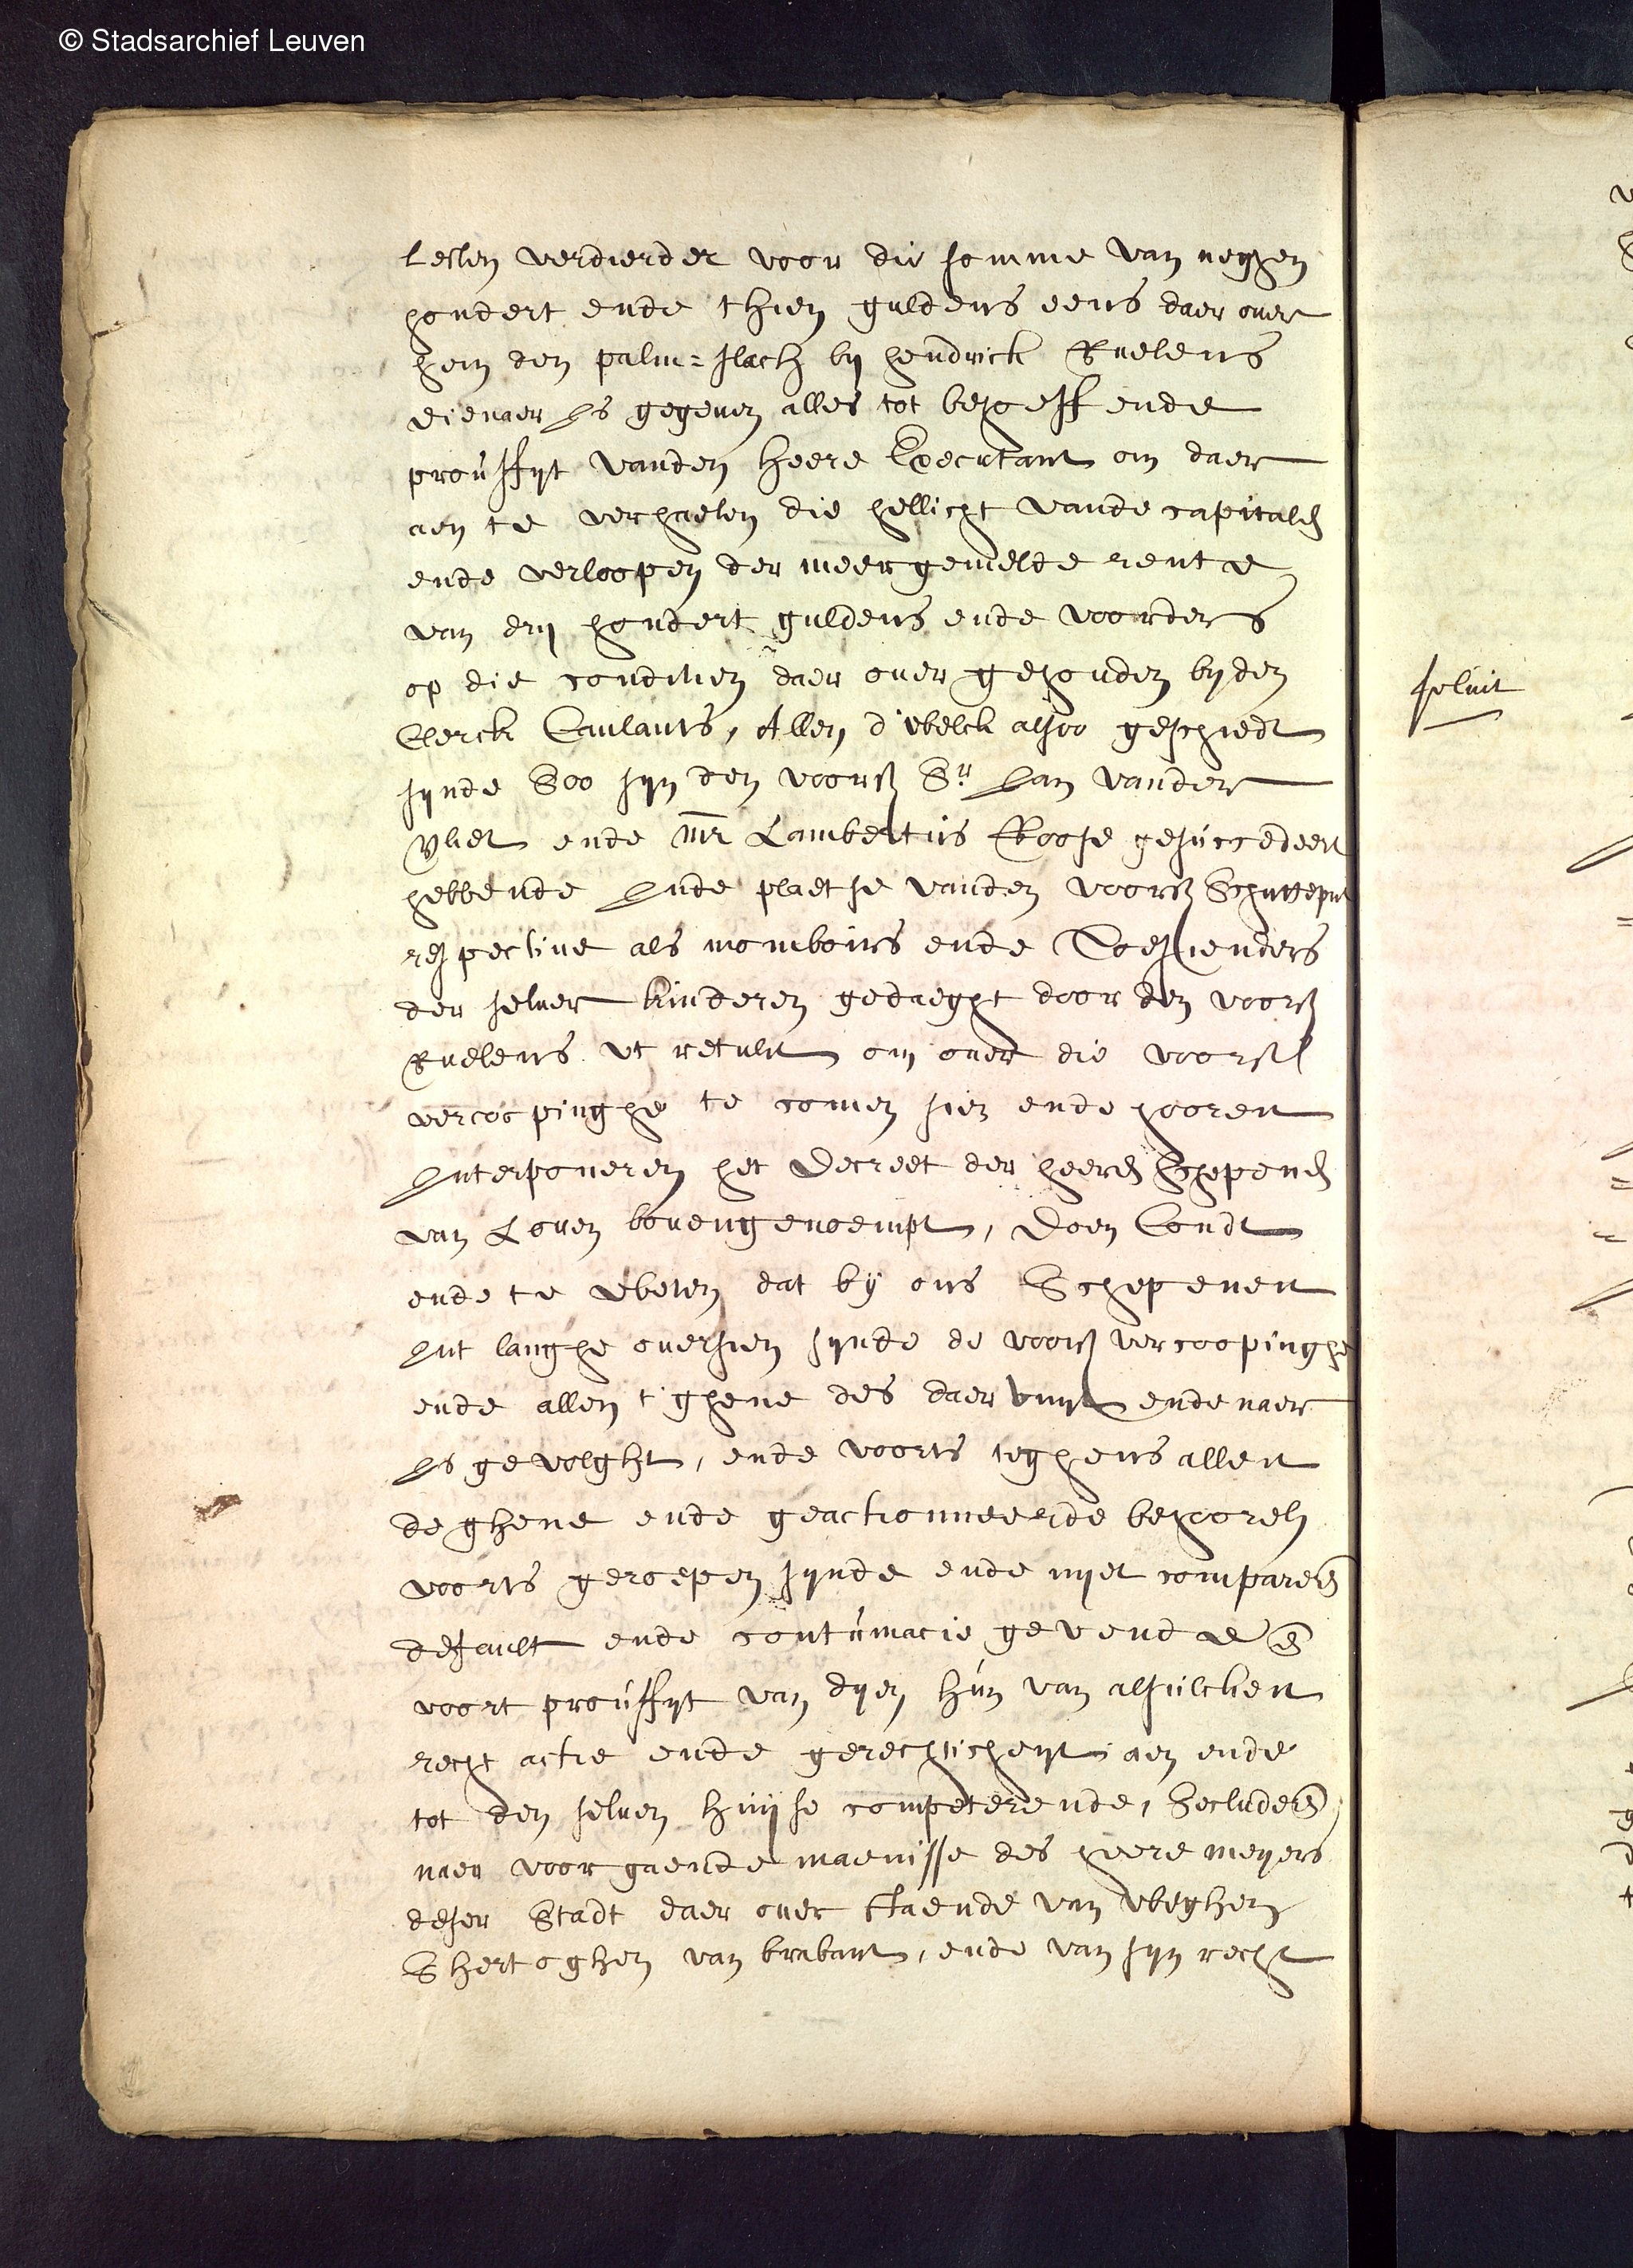 © Stadsarchief Leuven
lesten verdierder voor die somme van neghen
hondert ende thien guldens eens daer over
hem den palm=slach by hendrick Ruelens
dienaer is gegeven alles tot behoeff ende
prouffyt vanden heere Executant om daer
aen te verhaelen die hellicht vande capitale
ende verloopen der meergemelde rente
van dry hondert guldens ende voorders
op die conditien daer over gehouden byden
Clerck Caulants, Allen d'welck alsoo geschiedt
synde Soo syn den voors Sr Jan vander
Vliet ende Mr Lambertus Roose gesuccedeert
hebbende Inde plaetse vanden voors
respective als momboirs ende Toesienders
der selver kinderen gedaeght door den voors
Ruelens ut retulit om over die voors
vercoopinghe te comen sien ende hooren
Interponeren het Decreet der heeren Schepenen
van Loven bovengenoempt, Doen Condt
ende te weten dat by ons Schepenen
Int langhe oversien synde de voors vercoopinghe
ende allen t'ghene des daer vuyt ende naer
is gevolght, ende voorts teghens allen
deghene ende geactionneerde behooren
voorts geroepen synde ende nyet comparen
default ende contumacie gevende en
voort prouffyt van dyen hun van alsulcken
recht actie ende gerechticheyt aen ende
tot den selven huyse competerende, Secluderen
naer voorgaende maenisse des heere meyers
deser Stadt daer over staende van weghen
Shertoghen van brabant, ende van syn recht
solvit